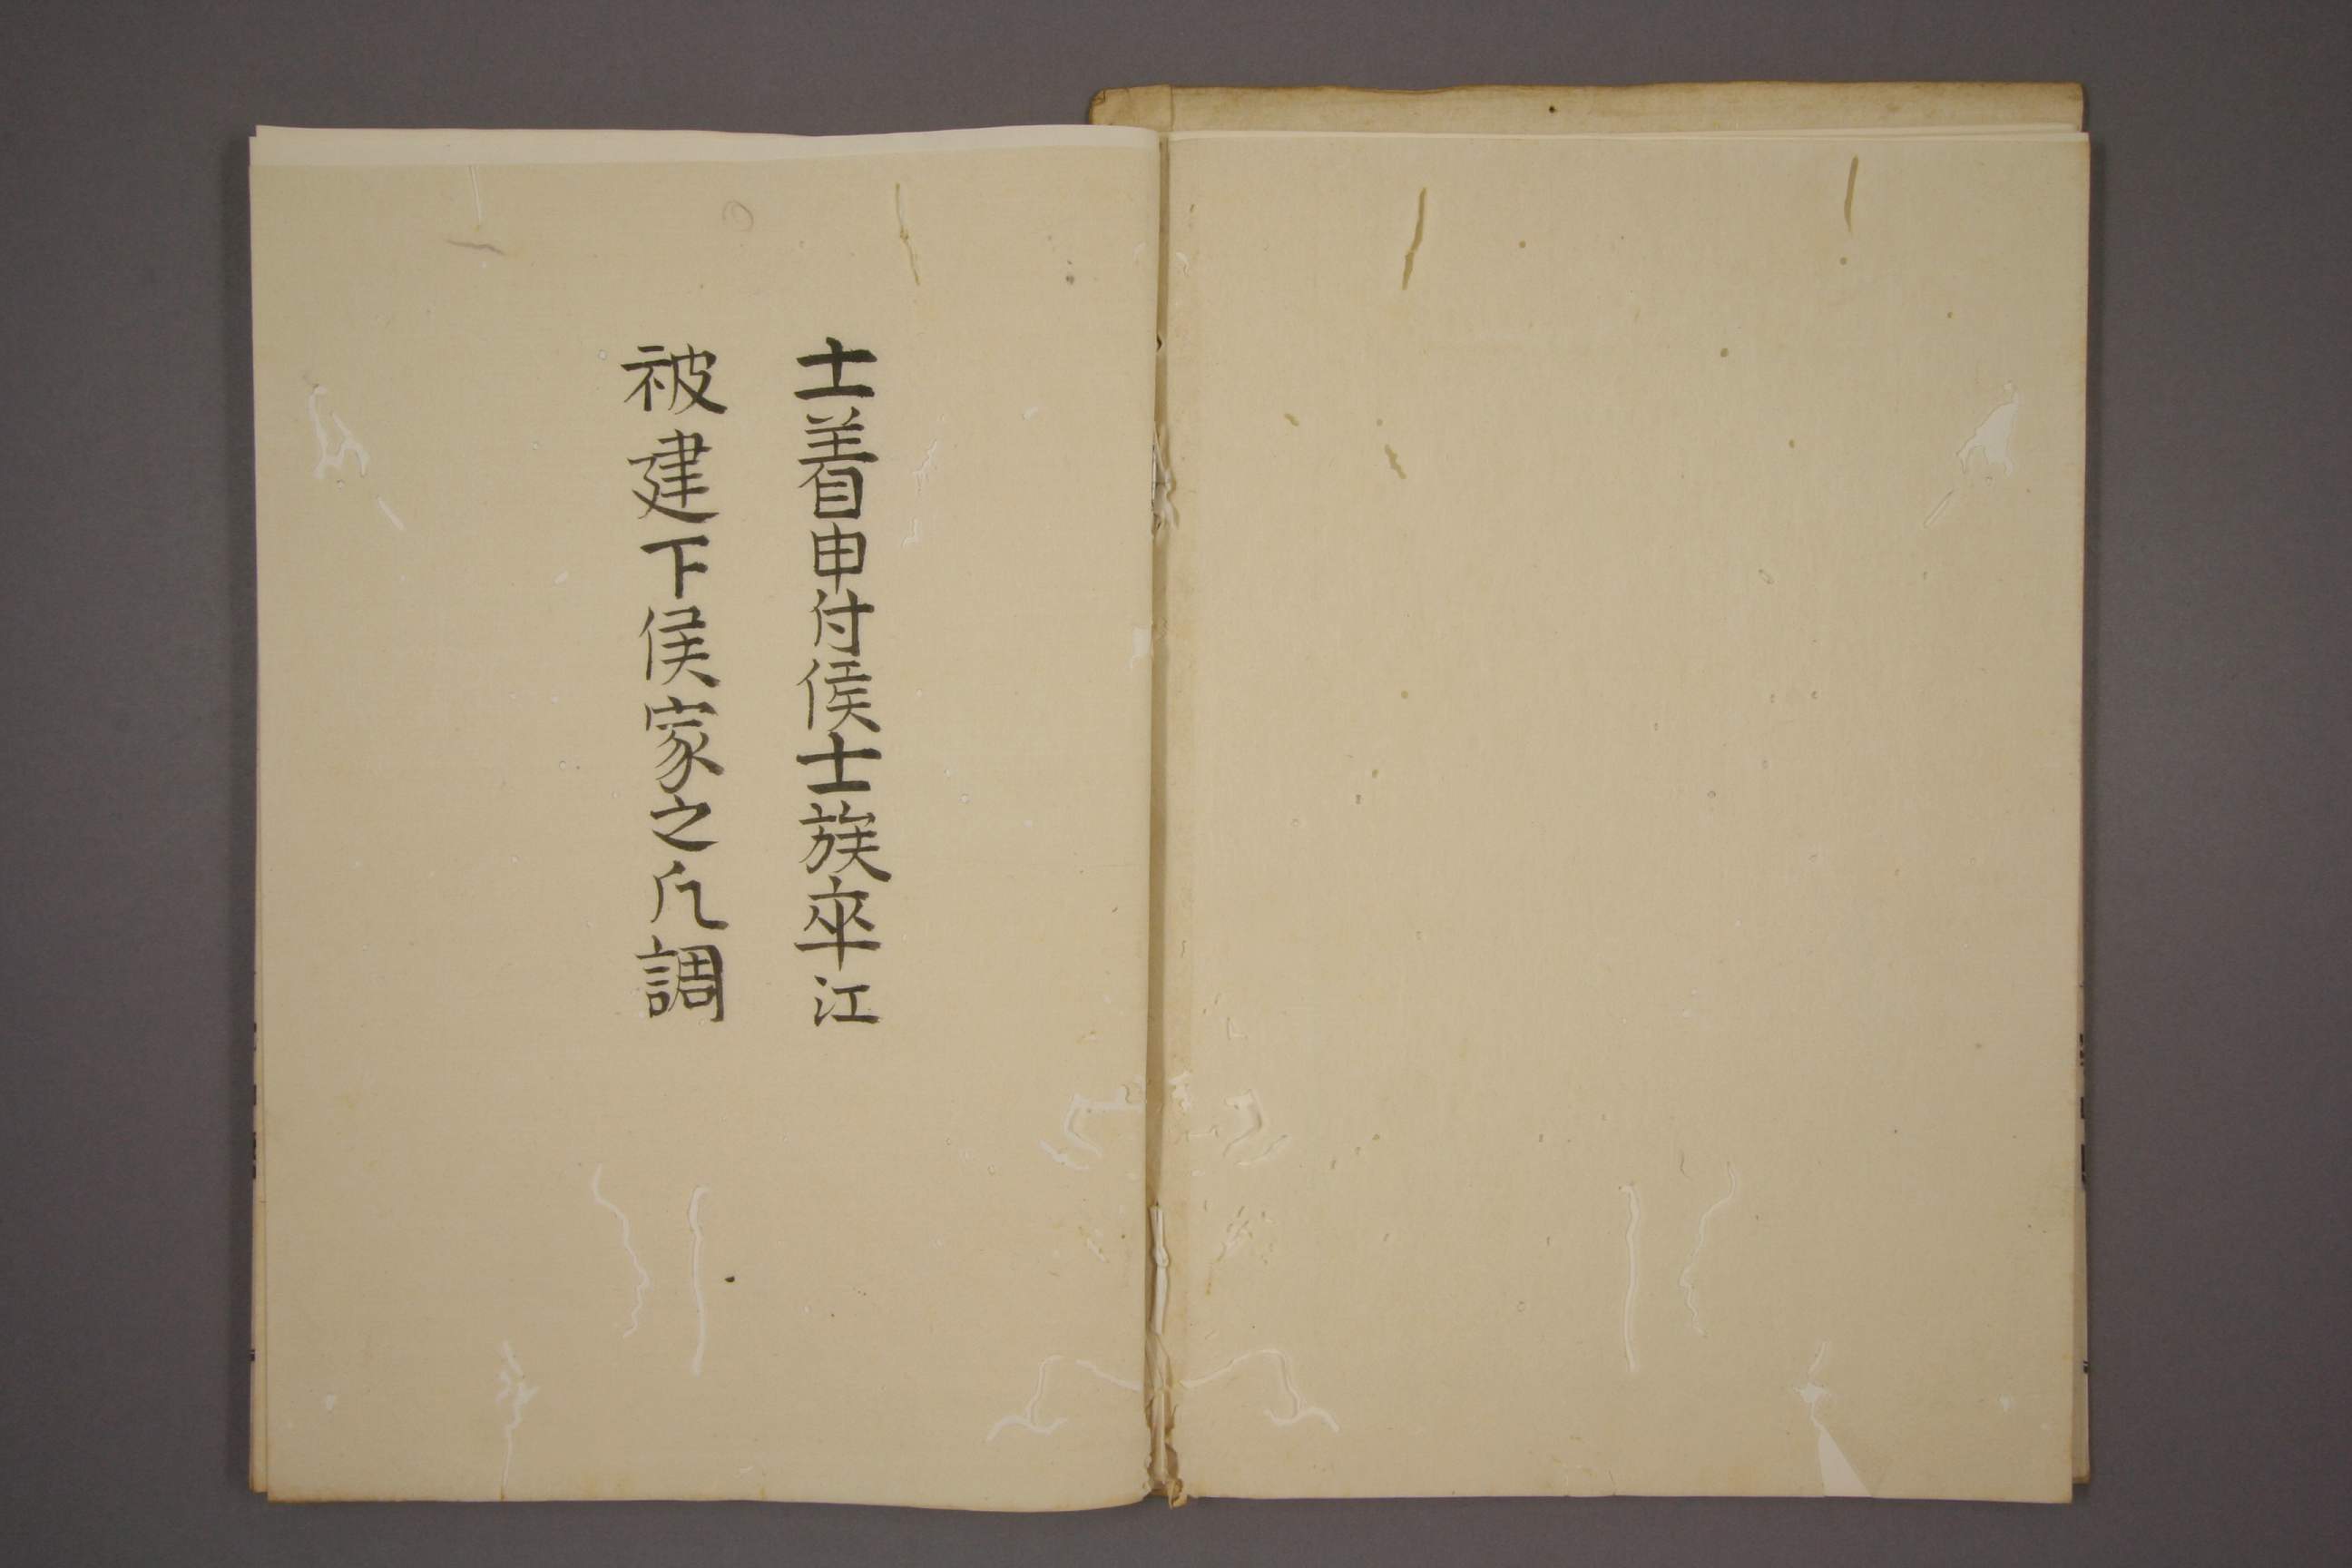 士着申付候士族卒江
被建下候家之凡調